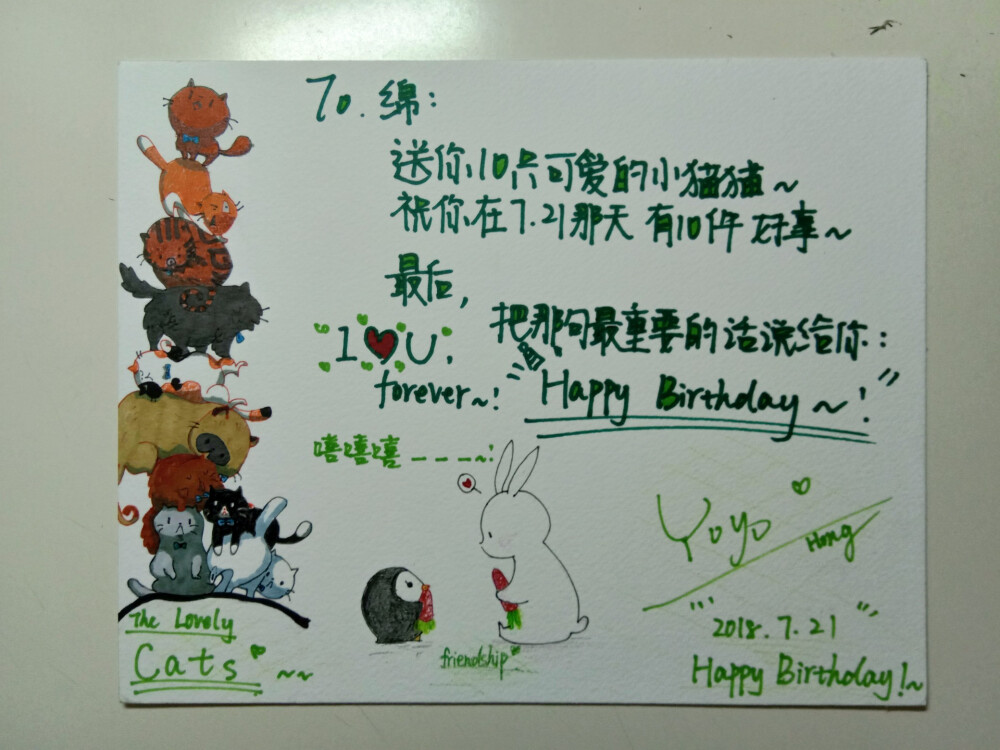 To. 绵:
送你10只可爱的小猫猫~
祝你在7.21那天有10件好事~
最后,
把那句最重要的话说给你:
I ❤ U,
forever~!
"Happy Birthday~!"
嘻嘻嘻----~!
YoYo
Hong
friendship
The Lovely
Cats ~~
"2018.7.21"
Happy Birthday!~